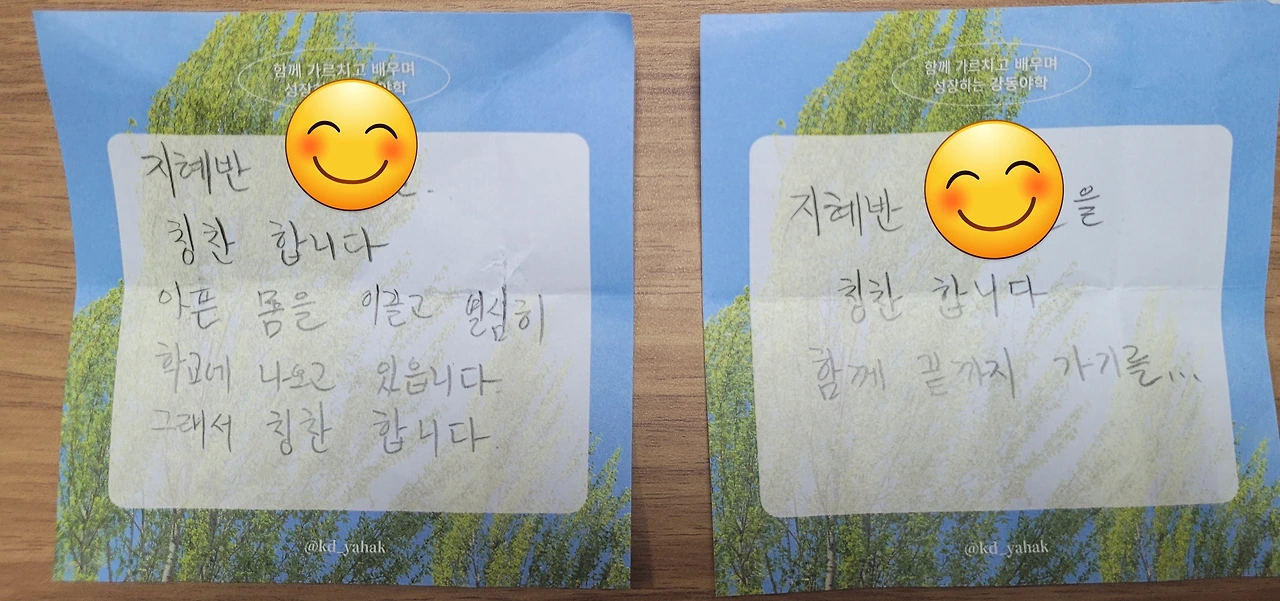 함께 가르치고 배우며
성장 야학
지혜반
칭찬 합니다
아픈 몸을 이끌고 열심히
학교에 나오고 있읍니다.
그래서 칭찬 합니다.
@kd_yahak
함께 가르치고 배우며
성장하는 강동야학
지혜반 을
칭찬 합니다
함께 끝까지 가기를...
@kd_yahak